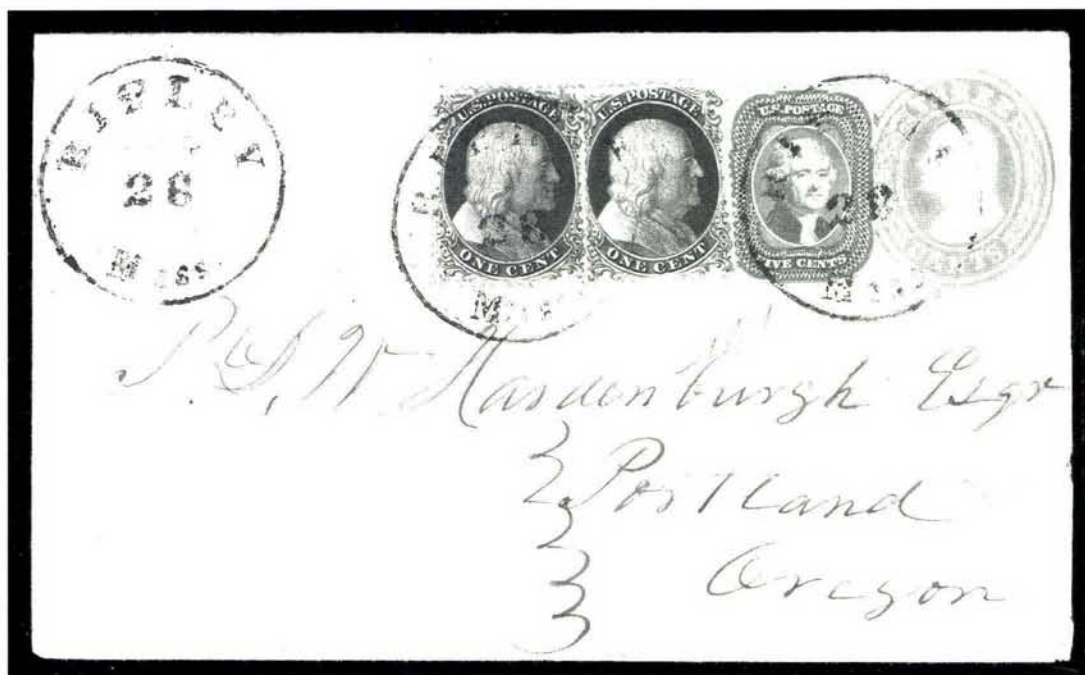 RIPLEY
28
Miss
U.S. POSTAGE
ONE CENT
U.S. POSTAGE
ONE CENT
U.S. POSTAGE
FIVE CENTS
28
Miss
28
Mis
P. S. W. Hardenburgh Esqr
Portland
Oregon